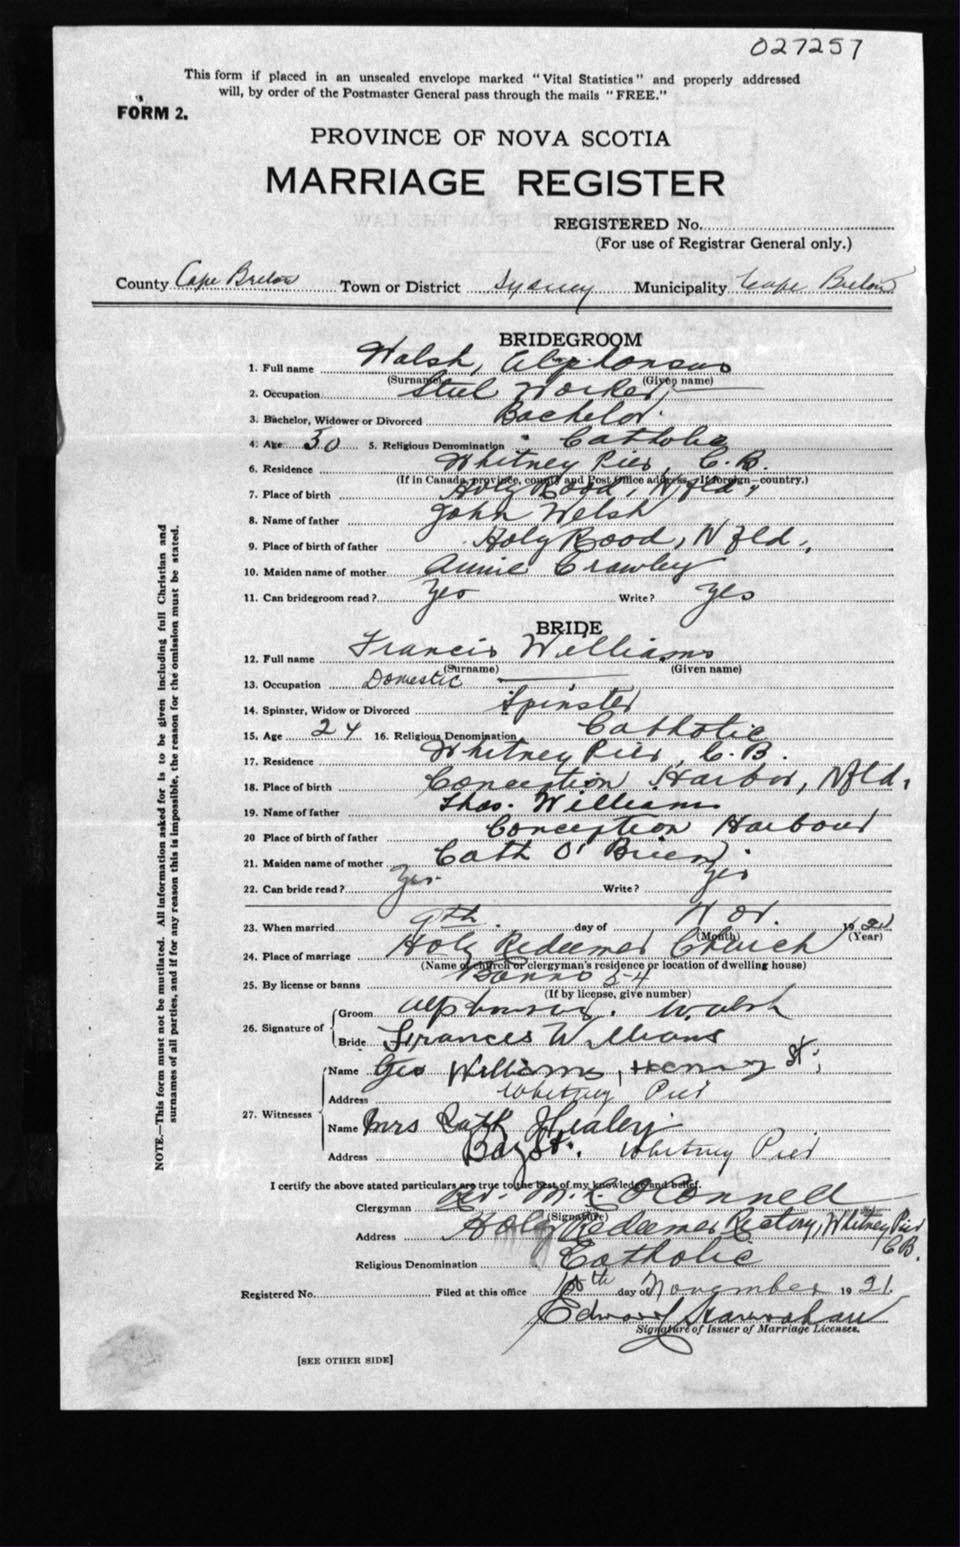 027257
This form if placed in an unsealed envelope marked "Vital Statistics" and properly addressed
will, by order of the Postmaster General pass through the mails "FREE."
FORM 2.
PROVINCE OF NOVA SCOTIA
MARRIAGE REGISTER
REGISTERED No.
(For use of Registrar General only.)
County Cape Breton Town or District Sydney Municipality Cape Breton
BRIDEGROOM
1. Full name Walsh, Alphonsus
(Surname) (Given name)
2. Occupation Steel Worker
3. Bachelor, Widower or Divorced Bachelor.
4. Age 30 5. Religious Denomination Catholic
6. Residence Whitney Pier, C.B.
(If in Canada, province, county and Post Office address. If foreign—country.)
7. Place of birth Holy Rood, Nfld,
8. Name of father John Welsh
9. Place of birth of father Holy Rood, Nfld.,
10. Maiden name of mother Annie Crawley
11. Can bridegroom read? Yes Write? Yes
BRIDE
12. Full name Francis Williams
(Surname) (Given name)
13. Occupation Domestic
14. Spinster, Widow or Divorced Spinster
15. Age 24 16. Religious Denomination Catholic
17. Residence Whitney Pier, C.B.
18. Place of birth Conception Harbor, Nfld,
19. Name of father Thos. Williams
20 Place of birth of father Conception Harbour
21. Maiden name of mother Cath O'Brien
22. Can bride read? Yes. Write? Yes
23. When married 9th. day of Nov. 1921
(Month) (Year)
24. Place of marriage Holy Redeemer Church
(Name of church or clergyman's residence or location of dwelling house)
25. By license or banns Banns
(If by license, give number)
26. Signature of Groom Alphonsus. Walsh
Bride Frances Williams
27. Witnesses Name Geo Williams, Henry St.,
Address Whitney Pier
Name Mrs Cath Healey
Address Bay St. Whitney Pier
I certify the above stated particulars are true to the best of my knowledge and belief.
Clergyman Rev. M. R. O'Connell
(Signature)
Address Holy Redeemer Rectory, Whitney Pier
C.B.
Religious Denomination Catholic
Registered No. Filed at this office 10th day of November 1921.
Edward
Signature of Issuer of Marriage Licenses.
[SEE OTHER SIDE]
NOTE.—This form must not be mutilated. All information asked for is to be given including full Christian and
surnames of all parties, and if for any reason this is impossible, the reason for the omission must be stated.